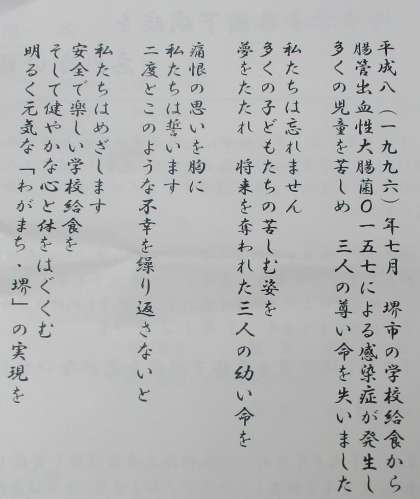 平成八（一九九六）年七月　堺市の学校給食から
腸管出血性大腸菌O一五七による感染症が発生し
多くの児童を苦しめ　三人の尊い命を失いました
私たちは忘れません
多くの子どもたちの苦しむ姿を
夢をたたれ　将来を奪われた三人の幼い命を
痛恨の思いを胸に
私たちは誓います
二度とこのような不幸を繰り返さないと
私たちはめざします
安全で楽しい学校給食を
そして健やかな心と体をはぐくむ
明るく元気な「わがまち・堺」の実現を